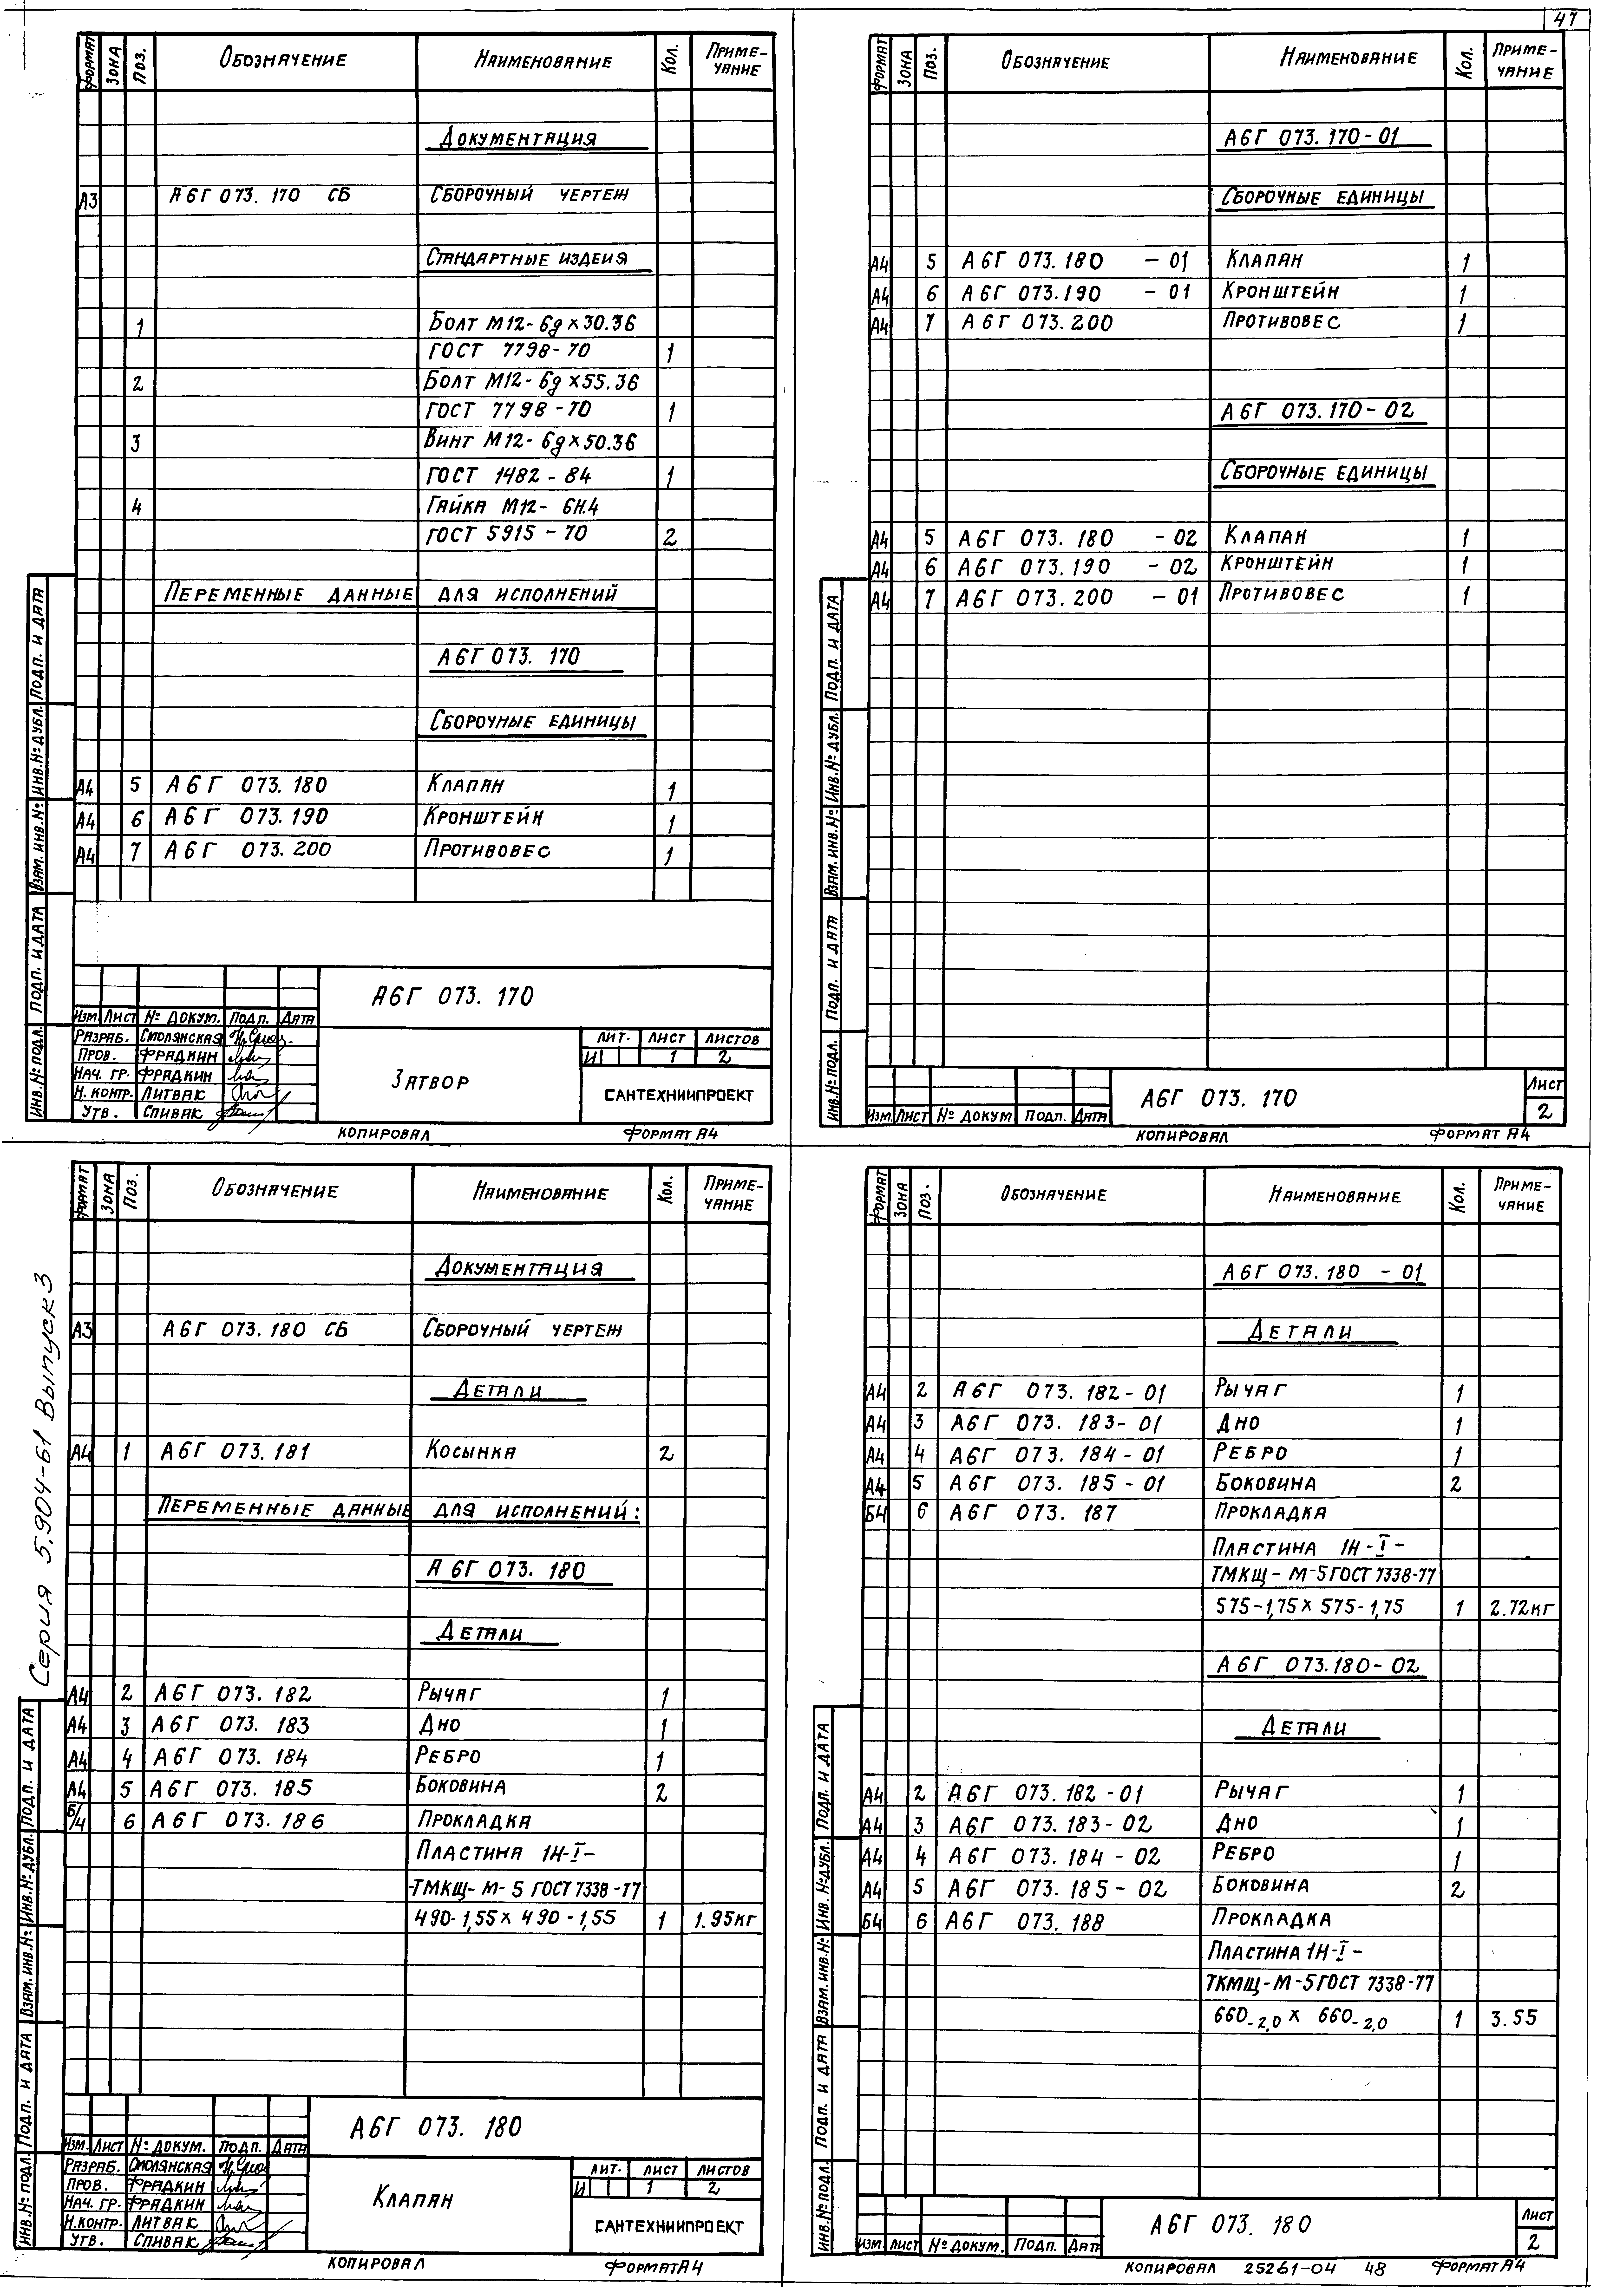 47
Формат Зона Поз. Обозначение Наименование Кол. Приме-
чание
Документация
А3 А6Г 073. 170 СБ Сборочный чертеж
Стандартные издеия
1 Болт М12-6g×30.36
ГОСТ 7798-70 1
2 Болт М12-6g×55.36
ГОСТ 7798-70 1
3 Винт М12-6g×50.36
ГОСТ 1482-84 1
4 Гайка М12-6Н.4
ГОСТ 5915-70 2
Переменные данные для исполнений
А6Г 073. 170
Сборочные единицы
А4 5 А6Г 073.180 Клапан 1
А4 6 А6Г 073.190 Кронштейн 1
А4 7 А6Г 073.200 Противовес 1
Подп. и дата
Инв.№ дубл.
Взам. инв.№
Подп. и дата
Инв.№ подл.
А6Г 073. 170
Изм. Лист № докум. Подп. Дата
Разраб. Смолянская
Пров. Фрадкин
Нач. гр. Фрадкин
Н. контр. Литвак
Утв. Спивак
Затвор
Лит. Лист Листов
И 1 2
САНТЕХНИИПРОЕКТ
Копировал Формат А4
Формат Зона Поз. Обозначение Наименование Кол. Приме-
чание
А6Г 073.170-01
Сборочные единицы
А4 5 А6Г 073.180 -01 Клапан 1
А4 6 А6Г 073.190 -01 Кронштейн 1
А4 7 А6Г 073.200 Противовес 1
А6Г 073.170-02
Сборочные единицы
А4 5 А6Г 073.180 -02 Клапан 1
А4 6 А6Г 073.190 -02 Кронштейн 1
А4 7 А6Г 073.200 -01 Противовес 1
Подп. и дата
Инв.№ дубл.
Взам. инв.№
Подп. и дата
Инв.№ подл.
Изм. Лист № докум Подп. Дата
А6Г 073. 170
Лист
2
Копировал Формат А4
Серия 5.904-61 Выпуск 3
Формат Зона Поз. Обозначение Наименование Кол. Приме-
чание
Документация
А3 А6Г 073.180 СБ Сборочный чертеж
Детали
А4 1 А6Г 073.181 Косынка 2
Переменные данные для исполнений:
А6Г 073. 180
Детали
А4 2 А6Г 073. 182 Рычаг 1
А4 3 А6Г 073. 183 Дно 1
А4 4 А6Г 073. 184 Ребро 1
А4 5 А6Г 073. 185 Боковина 2
Б/4 6 А6Г 073. 186 Прокладка
Пластина 1Н-I-
ТМКЩ-М-5 ГОСТ 7338-77
490-1,55×490-1,55 1 1.95кг
Подп. и дата
Инв.№ дубл.
Взам. инв.№
Подп. и дата
Инв.№ подл.
А6Г 073. 180
Изм. Лист № докум. Подп. Дата
Разраб. Смолянская
Пров. Фрадкин
Нач. гр. Фрадкин
Н.контр. Литвак
Утв. Спивак
Клапан
Лит. Лист Листов
И 1 2
САНТЕХНИИПРОЕКТ
Копировал Формат А4
Формат Зона Поз. Обозначение Наименование Кол. Приме-
чание
А6Г 073.180 -01
Детали
А4 2 А6Г 073. 182-01 Рычаг 1
А4 3 А6Г 073. 183-01 Дно 1
А4 4 А6Г 073. 184-01 Ребро 1
А4 5 А6Г 073. 185-01 Боковина 2
Б4 6 А6Г 073. 187 Прокладка
Пластина 1Н-I-
ТМКЩ-М-5 ГОСТ 7338-77
575-1,75×575-1,75 1 2.72кг
А6Г 073.180-02
Детали
А4 2 А6Г 073.182-01 Рычаг 1
А4 3 А6Г 073.183-02 Дно 1
А4 4 А6Г 073.184-02 Ребро 1
А4 5 А6Г 073.185-02 Боковина 2
Б4 6 А6Г 073. 188 Прокладка
Пластина 1Н-I-
ТКМЩ-М-5 ГОСТ 7338-77
660-2,0 × 660-2,0 1 3.55
Подп. и дата
Инв. № дубл.
Взам. инв.№
Подп. и дата
Инв.№ подл.
Изм. Лист № докум. Подп. Дата
А6Г 073. 180
Лист
2
Копировал 25261-04 48 Формат А4